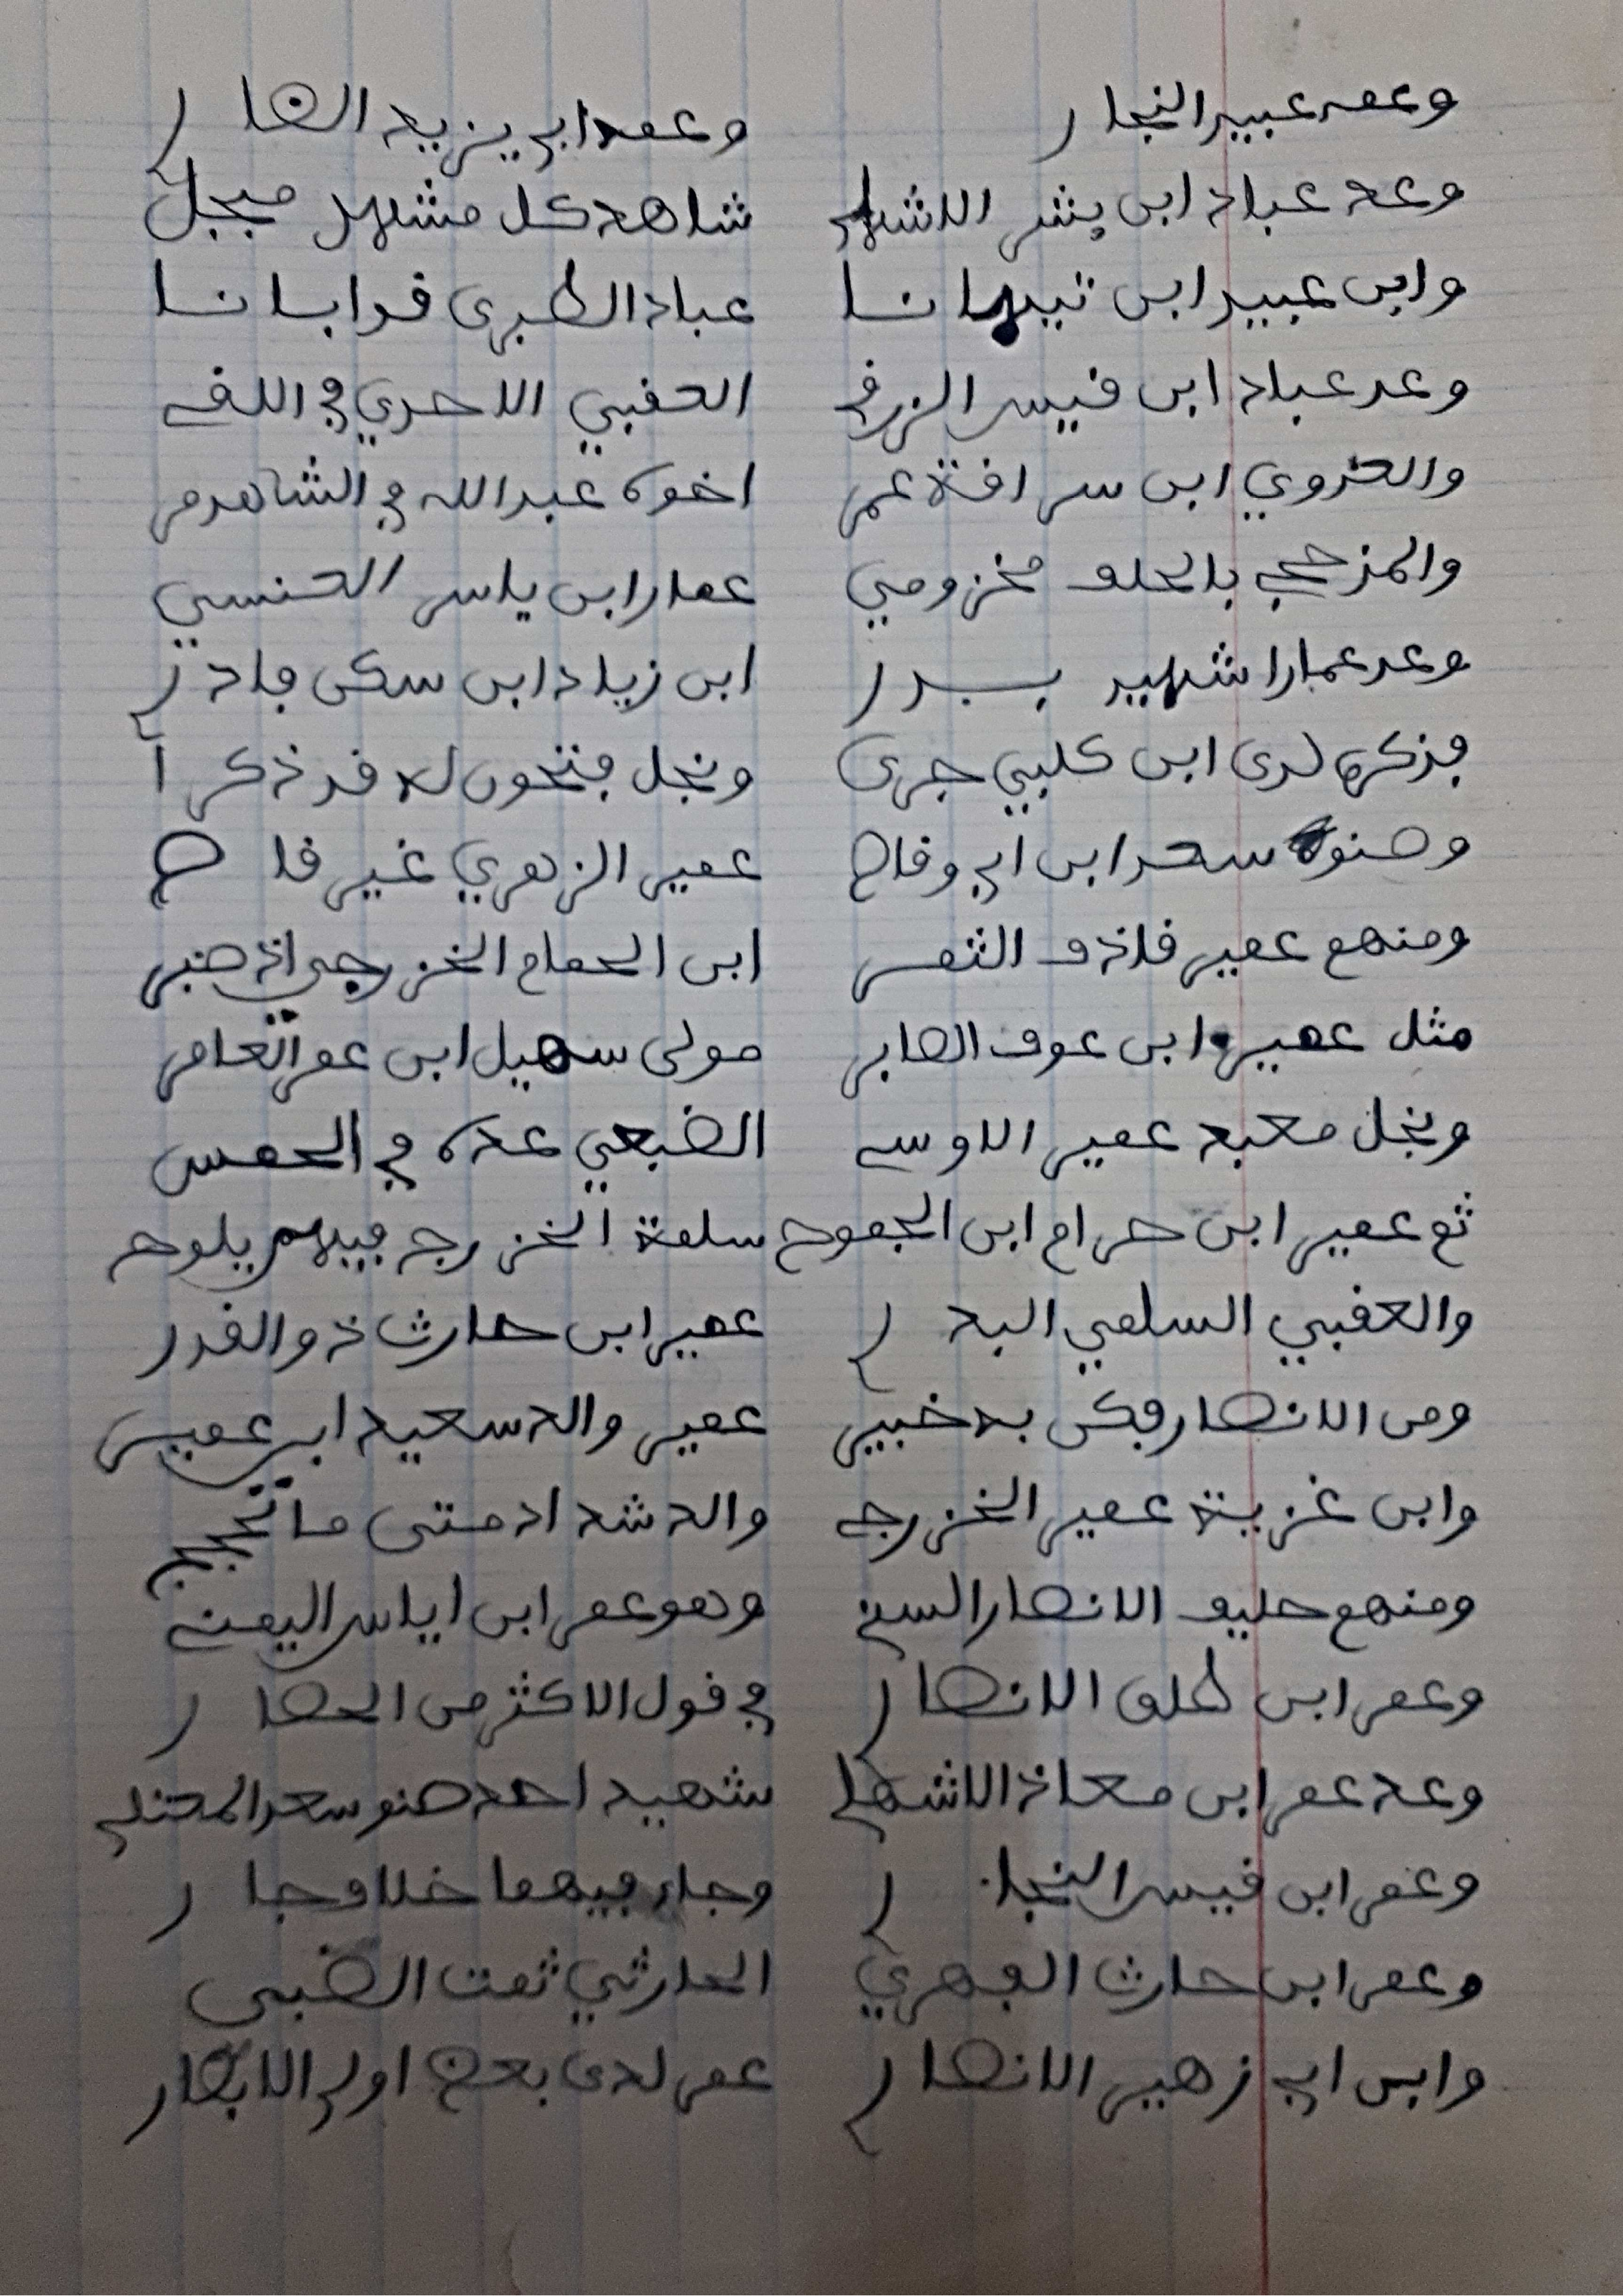 وعمر عبيد النجار وعمر ابي يزيد انصار
وعد عباد ابن بشر الاشهلي شاهد كل مشهد مبجل
وابن عبيد ابن تيهانا عباد الطبري قد ابانا
وعد عباد ابن قيس الزرقي العقبي الاحدي في اللقي
والعدوي ابن سراقة عمر اخوه عبد الله في الشاهد مر
والمذحجي بالحلف مخزومي عمار ابن ياسر العنسي
وعد عمارا شهيد بدر ابن زياد ابن سكن فادر
فذكره لدى ابن كلبي جرى ونجل فتحون له قد ذكرا
وصنوه سعد ابن ابي وقاص عمير الزهري غير قاص
ومنهم عمير فاذو الثمر ابن الحمام الخزرجي اذ صبر
مثل عمير ابن عوف الصابر مولى سهيل ابن عمر العامر
ونجل معبد عمير الاوسي الضبعي عده في الحمس
ثم عمير ابن حرام ابن الجموح سلمة الخزرج فيهم يلوح
والعقبي السلمي البدر عمير ابن حارث ذو القدر
ومن الانصار فكن به خبير عمير والد سعيد ابي عمير
وابن غزية عمير الخزرجي والد شداد متى ما
ومنهم حليف الانصار السني وهو عمر ابن اياس اليمني
وعمر ابن طلق الانصار في قول الاكثر من الحصار
وعد عمر ابن معاذ الاشهل شهيد احد صنو سعد المعتلي
وعمر ابن قيس النجار وجاء فيهما خلاف جار
وعمر ابن حارث الفهري الحارثي ثمت الضبي
وابن ابي زهير الانصار عمر لدى بعض اولي الابصار